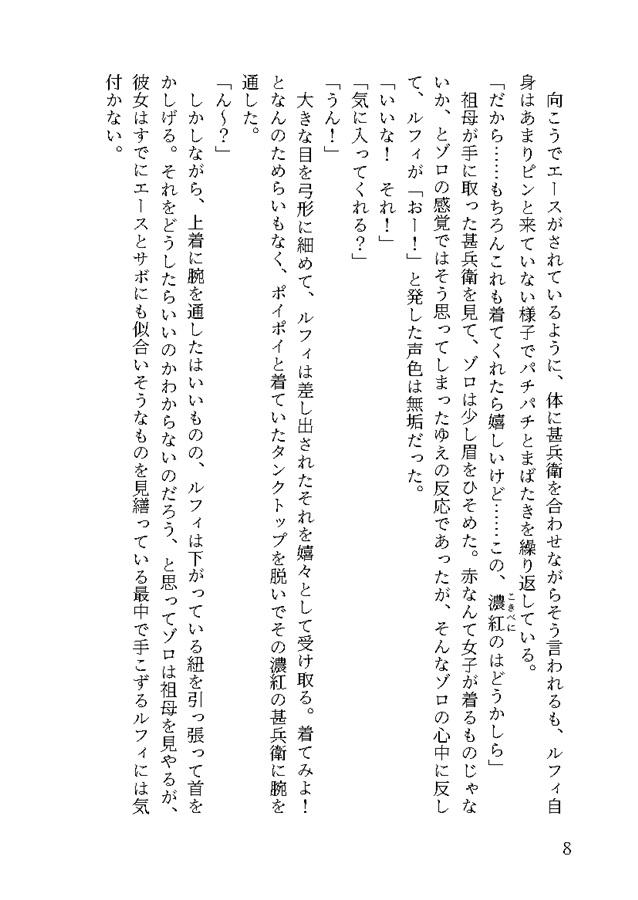 向こうでエースがされているように、体に甚兵衛を合わせながらそう言われるも、ルフィ自
身はあまりピンと来ていない様子でパチパチとまばたきを繰り返している。
「だから……もちろんこれも着てくれたら嬉しいけど……この、濃紅のはどうかしら」
こきべに
　祖母が手に取った甚兵衛を見て、ゾロは少し眉をひそめた。赤なんて女子が着るものじゃな
いか、とゾロの感覚ではそう思ってしまったゆえの反応であったが、そんなゾロの心中に反し
て、ルフィが「おー！」と発した声色は無垢だった。
「いいな！　それ！」
「気に入ってくれる？」
「うん！」
　大きな目を弓形に細めて、ルフィは差し出されたそれを嬉々として受け取る。着てみよ！
となんのためらいもなく、ポイポイと着ていたタンクトップを脱いでその濃紅の甚兵衛に腕を
通した。
「ん〜？」
　しかしながら、上着に腕を通したはいいものの、ルフィは下がっている紐を引っ張って首を
かしげる。それをどうしたらいいのかわからないのだろう、と思ってゾロは祖母を見やるが、
彼女はすでにエースとサボにも似合いそうなものを見繕っている最中で手こずるルフィには気
付かない。
8